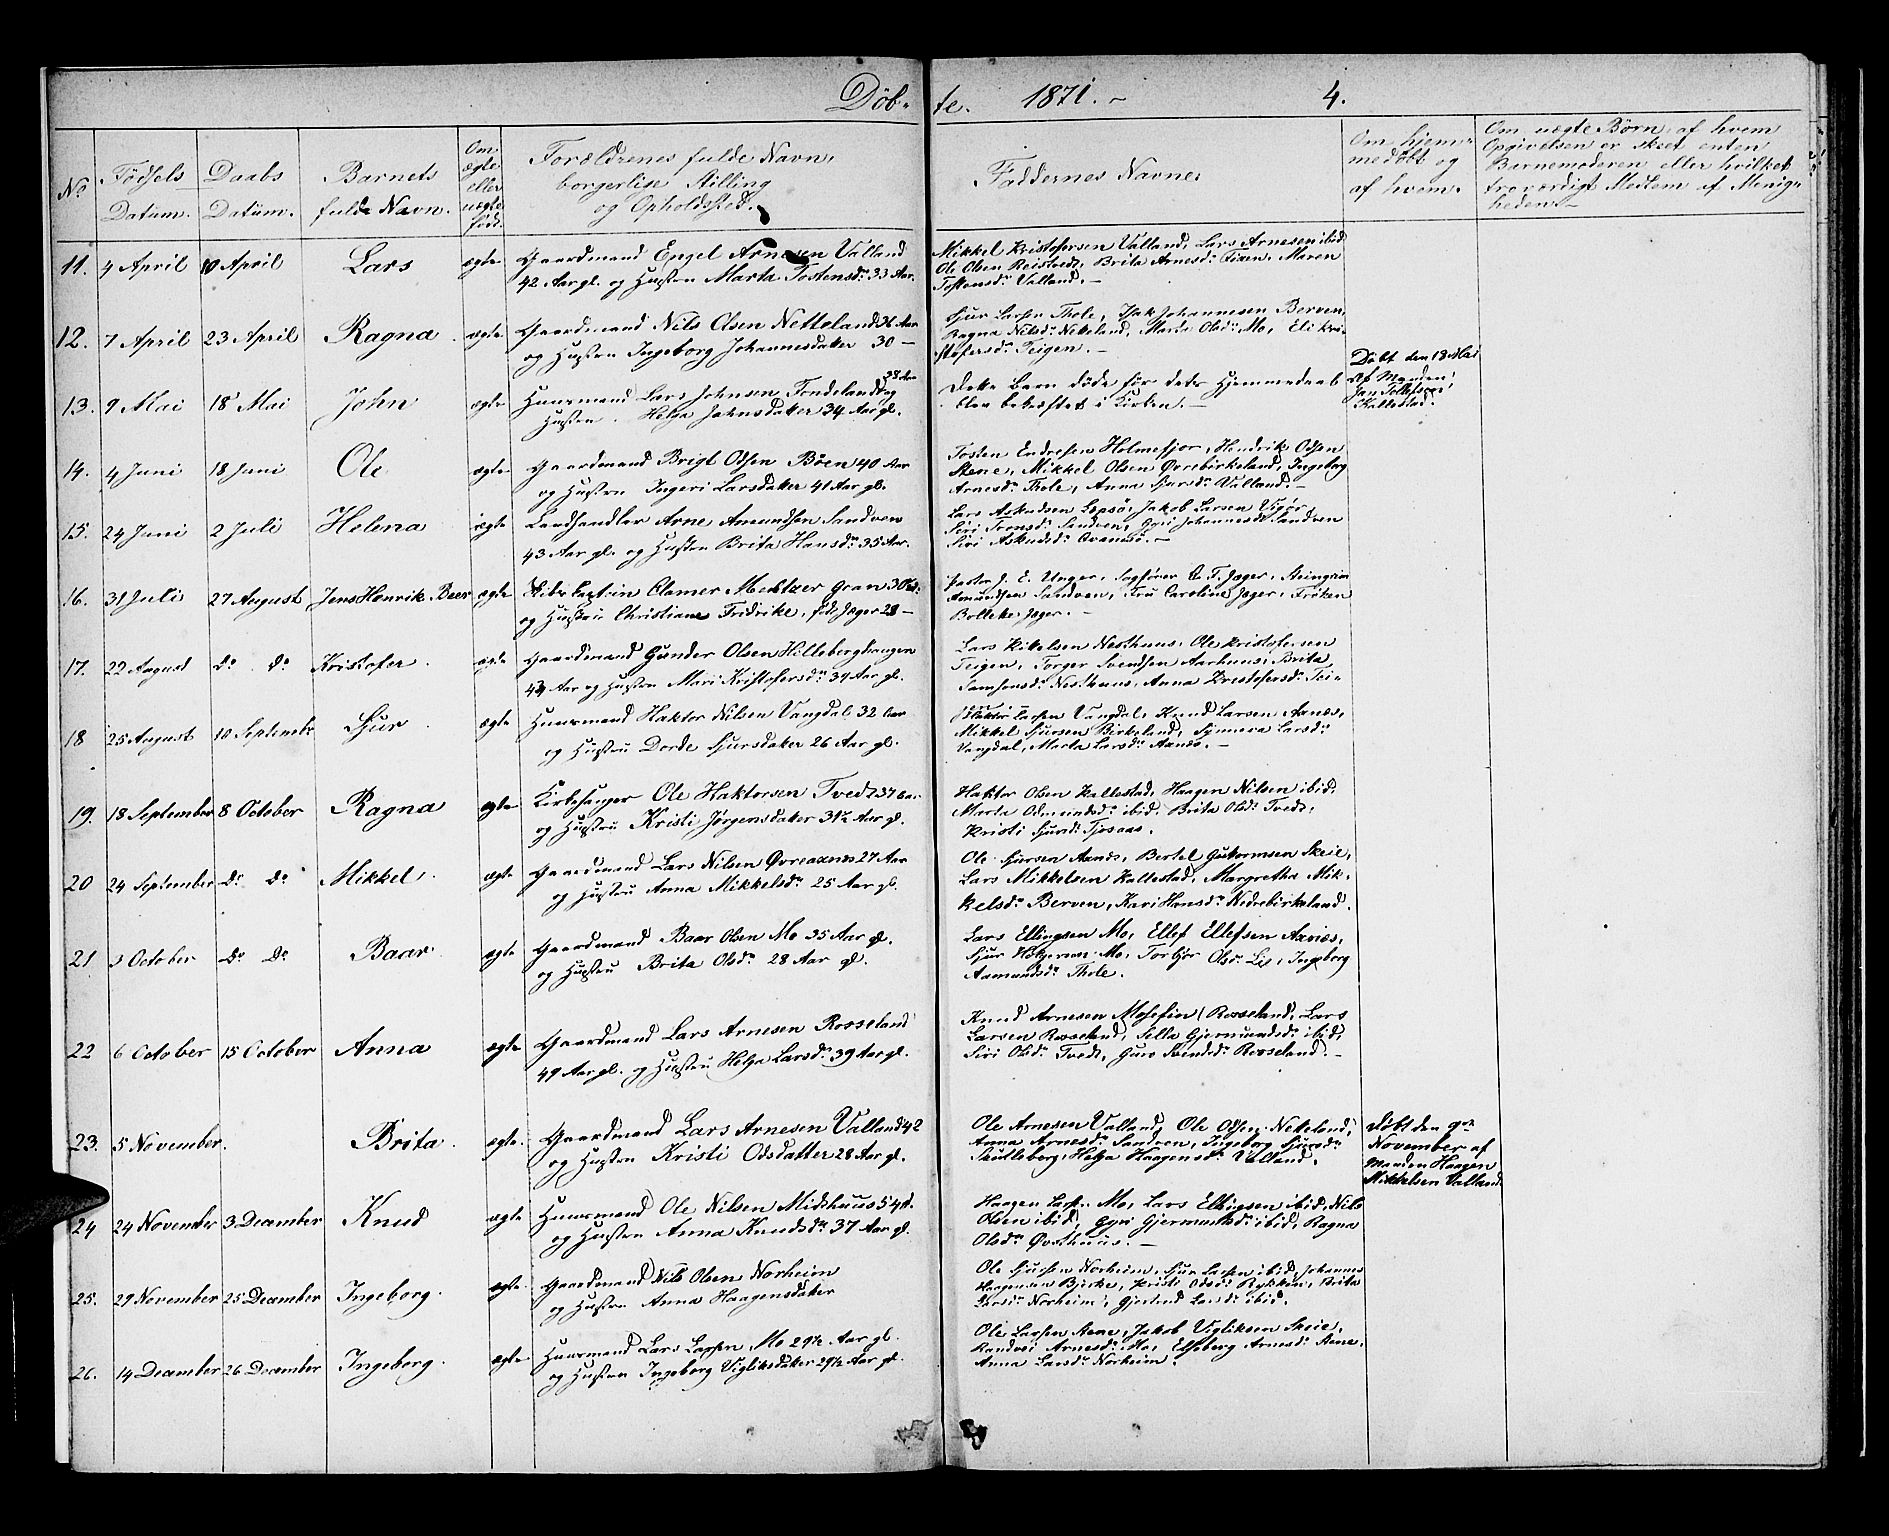 Døb- te. 1871. - 4.
No
Fødsels Datum.
Daabs Datum.
Barnets fulde Navn.
Om ægte eller uægte født.
Forældrenes fulde Navn, borgerlige Stilling og Opholdssted.
Faddernes Navne.
Om hjemmedøbt og af hvem.
Om uægte Børn, af hvem Opgivelsen er skeet enten Barnemoderen eller hvilket troværdigt Medlem af Menigheden.-
11. 4 April 10 April Lars ægte Gaardmand Engel Arnesen Valland Mikkel Kristofersen Valland, Lars Arnesen ibid
42 Aar gl. og Hustru Marta Tostensdr 33 Aar. Ole Olsen Reistvedt, Brita Arnesdr Maren
Tostensdr Valland.-
12. 7 April 23 April Ragna. ægte Gaardmand Nils Olsen Netteland 36 Aar Sjur Larsen Thole, Isak Johannesen Berven,
og Hustru Ingeborg Johannesdatter 30 - Ragna Nilsdr Neteland, Marta Olsdr Mo, Eli Kri-
stofersdr Teigen.-
13. 9 Mai 18 Mai John ægte Huusmand Lars Johnsen Tondeland 38 Aar og Dette Barn døde før dets Hjemmedaab Døbt den 13 Mai
Hustru Helga Jahnsdatter 34 Aar gl. blev bekræftet i Kirken.- af Manden
Jan Tollefsen
Kallestad.
14. 4 Juni 18 Juni Ole ægte Gaardmand Brigt Odsen Bøen 40 Aar Tosten Endresen Holmefjor, Hendrik Odsen
og Hustru Ingeri Larsdatter 41 Aar gl. Stene, Mikkel Olsen Øvrebirkeland, Ingeborg
Arnesdr Thole, Anna Sjursdr Valland.-
15. 24 Juni 2 Juli Helena ægte Landhandler Arne Amundsen Sandven Lars Aslaksen Lepsø, Jakob Larsen Vigør,
43 Aar gl. og Hustru Brita Hansdr 35 Aar. Siri Tronsdr Sandven, Gyri Johannesdr Sandven
Siri
16. 31 Juli 27 August Jens Henrik Beer ægte Captein Clamer Meltzer Gran 30 Pastor J. E. Unger, Sagfører T. Jæger, Steingrim
og Hustru Christiane Fredrike, født Jæger 28 - Amundsen Sandven, Fru Caroline Jæger, Frøken
Bolleke Jæger.-
17. 22 August Do Do Kristofer. ægte Gaardmand Gunder Olsen Hilleberghaugen Lars Nesthuus, Ole Kristofersen
Aar og Hustru Mari Kristofersdr 34 Aar gl. Teigen, Torger Svendsen Aarhuus, Brita
Samsonsdr Nesthuus, Anna Kristofersdr Tei-
18 25 August 10 Septembr Sjur. ægte Huusmand Haktor Nilsen Vangdal 32 Aar Haktor Larsen Vangdal, Knud Larsen Aanæs,
og Hustru Dorde Sjursdatter 26 Aar gl. Mikkel Sjursen Birkeland, Synneva Larsdr
Vangdal, Marta Larsdr Aanæs.-
19. 18 September 8 October Ragna ægte Kirkesanger Ole Haktorsen Tvedt 37 Aar Haktor Olsen Kallestad, Haagen Nilsen ibid,
og Hustru Kristi Jørgensdatter 31½ Aar gl. Marta Odmundsdr ibid, Brita Olsdr Tvedt,
Kristi Sjursdr
20 24 September Do Do Mikkel. ægte Gaardmand Lars Nilsen Øvreaanæs 27 Aar Ole Sjursen Aanæs, Bertel Gutormsen Skeie,
og Hustru Anna Mikkelsdr 25 Aar gl. Lars Mikkelsen Kallestad, Margretha Mik-
kelsdr Berven, Kari Hansdr Nedrebirkeland.
21 3 October Do Do Baar. ægte Gaardmand Baar Olsen Mo 35 Aar gl. Lars Ellingsen Mo, Ellef Ellefsen Aanæs,
og Hustru Brita Olsdr 28 Aar gl. Sjur Mo, Torbjør Olsdr Lie, Ingeborg
Aamundsdr Thole.
22 6 October 15 October Anna ægte Gaardmand Lars Arnesen Rosseland Knud Arnesen Mosefin (Rosseland, Lars
49 Aar gl. og Hustru Helga Larsdr 39 Aar gl. Larsen Rosseland, Silla Gjermundsdr ibid,
Siri Olsdr Tvedt, Guro Svendsdr Rosseland.-
23. 5 November. Brita. ægte. Gaardmand Lars Arnesen Valland 42 Ole Arnesen Valland, Ole Olsen Neteland, Døbt den 9de
og Hustru Kristi Odsdatter 28 Aar gl. Anna Arnesdr Sandven, Ingeborg Sjursdr November af
Skutleberg, Helga Haagensdr Valland. Manden Haagen
Mikkelsen Valland
24 24 November 3 December Knud ægte Huusmand Ole Nilsen Midthuus 54 Haagen Larsen Mo, Lars Ellingsen ibid, Nils
og Hustru Anna Knudsdr 37 Aar gl. Olsen ibid, Gyri Gjermundsdr ibid, Ragna
Olsdr Øvsthuus.-
25. 29 November 25 December Ingeborg. ægte Gaardmand Nils Olsen Norheim Ole Sjursen Norheim, Sjur Larsen ibid, Johannes
og Hustru Anna Haagensdatter Haagensen Bjørke, Kristi Odsdr Rykken, Brita
Larsdr Norheim, Gjertrud Larsdr ibid.
26. 14 December 26 December Ingeborg. ægte Huusmand Lars Larsen Mo 29½ Aar gl. Ole Larsen Stene, Jakob Vigliksen Skeie,
og Hustru Ingeborg Vigliksdatter 29½ Aar gl. Randvei Arnesdr Mo, Elseberg Arnesdr Stene,
Anna Larsdr Norheim.